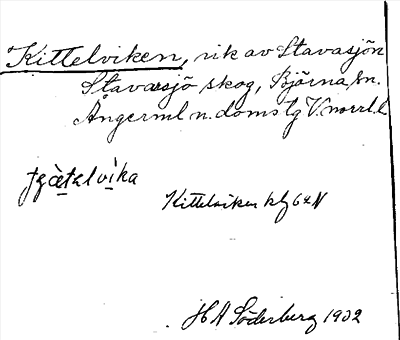 Kittelviken, vik av Stavasjön
Stavarsjö skog, Björna sn.
Ångerml n. doms lg V.norrl. l
Kittelviken
H A Söderberg 1932